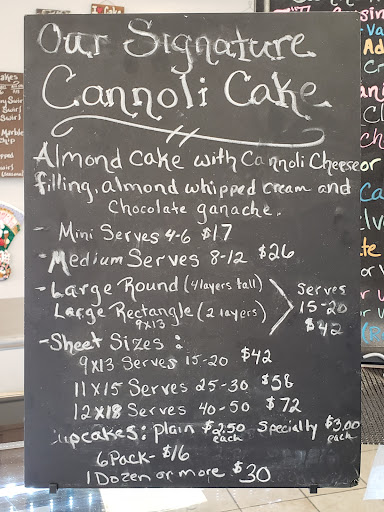 Our Signature
Cannoli Cake
Almond cake with Cannoli Cheese
filling, almond whipped cream and
Chocolate ganache.
- Mini Serves 4-6 $17
- Medium Serves 8-12 $26
- Large Round (4 layers tall)
Large Rectangle (2 layers)
9x13
Serves
15-20
$42
- Sheet Sizes:
9x13 Serves 15-20 $42
11x15 Serves 25-30 $58
12x18 Serves 40-50 $72
cupcakes: Plain $2.50 each Specially $3.00 each
6 Pack- $16
1 Dozen or more $30